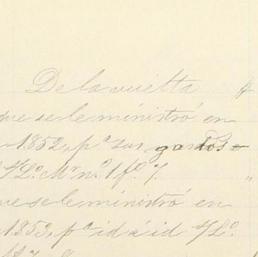 De la vuelta
que se le ministró en
1852, pª sus gastos
Lº. Mº. nº. 1 fº. 7.
que se le ministró en
1853, pª id á id Lº.